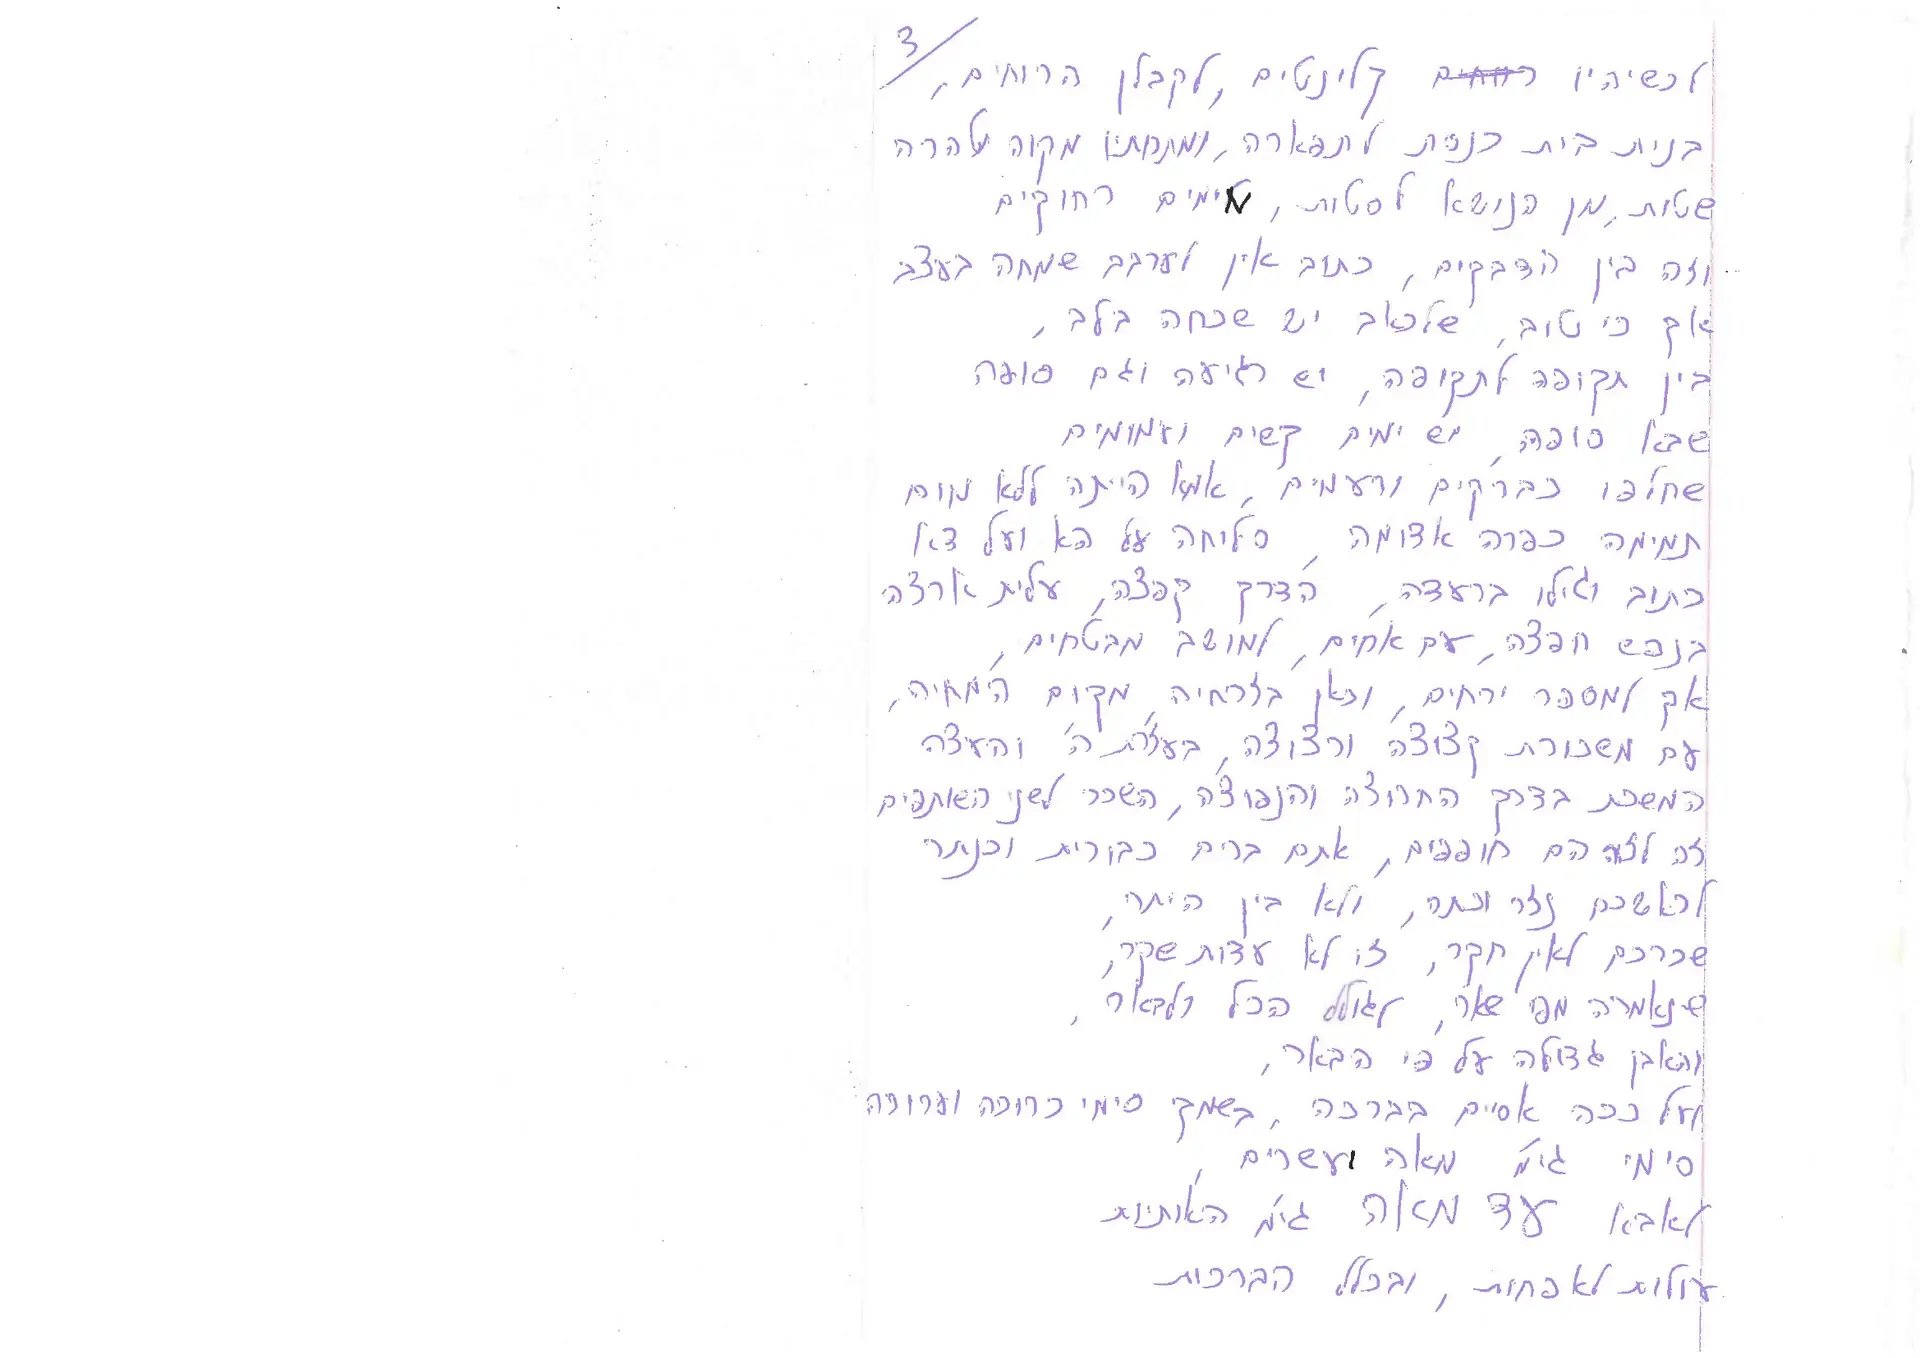 3
לכשיהיו רווחים קלינטים, לקבלן הרוחים,
בנית בית כנסת לתפארה, ומתחתיו מקוה טהרה
שטות, מן הנושא לסטות, מימים רחוקים
וזה בין הדבקים, כתוב אין לערבב שמחה בעצב
אך כי טוב, שלכאב יש שכחה בלב,
בין תקופה לתקופה, יש רגיעה וגם סופה
שבא סופה, יש ימים קשים ועמומים
שחלפו כברקים ורעמים, אמא הייתה ללא מום
תמימה כפרה אדומה, סליחה על הא ועל דא
כתוב וגילו ברעדה, הדרך קפצה, עלית ארצה
בנפש חפצה, עם אחים, למושב מבטחים,
אך למספר ירחים, וכאן בזרחיה, מקום המחיה,
עם משכורת קצוצה ורצוצה, בעזרת ה' והעצה
המשכת בדרך החרוצה והנפוצה, השכר לשני השותפים
זה לזה הם חופפים, אתם ברים כבורית וכנתר
לראשכם נזר וכתר, ולא בין היתר,
שכרכם לאין חקר, זו לא עדות שקר,
שנאמרה מפי שאר, לגולל הכל ולבאר,
והאבן גדולה על פי הבאר,
ועל ככה אסיים בברכה, בשמך סימי כרוכה וערוכה
סימי גימ' מאה ועשרים,
לאבא עד מאה גימ' האותיות
עולות לאפחות, ובכלל הברכות